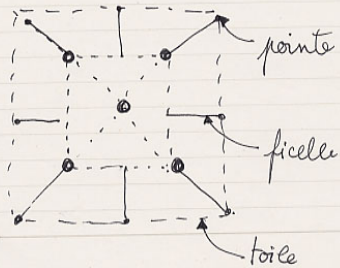 pointe
ficelle
toile